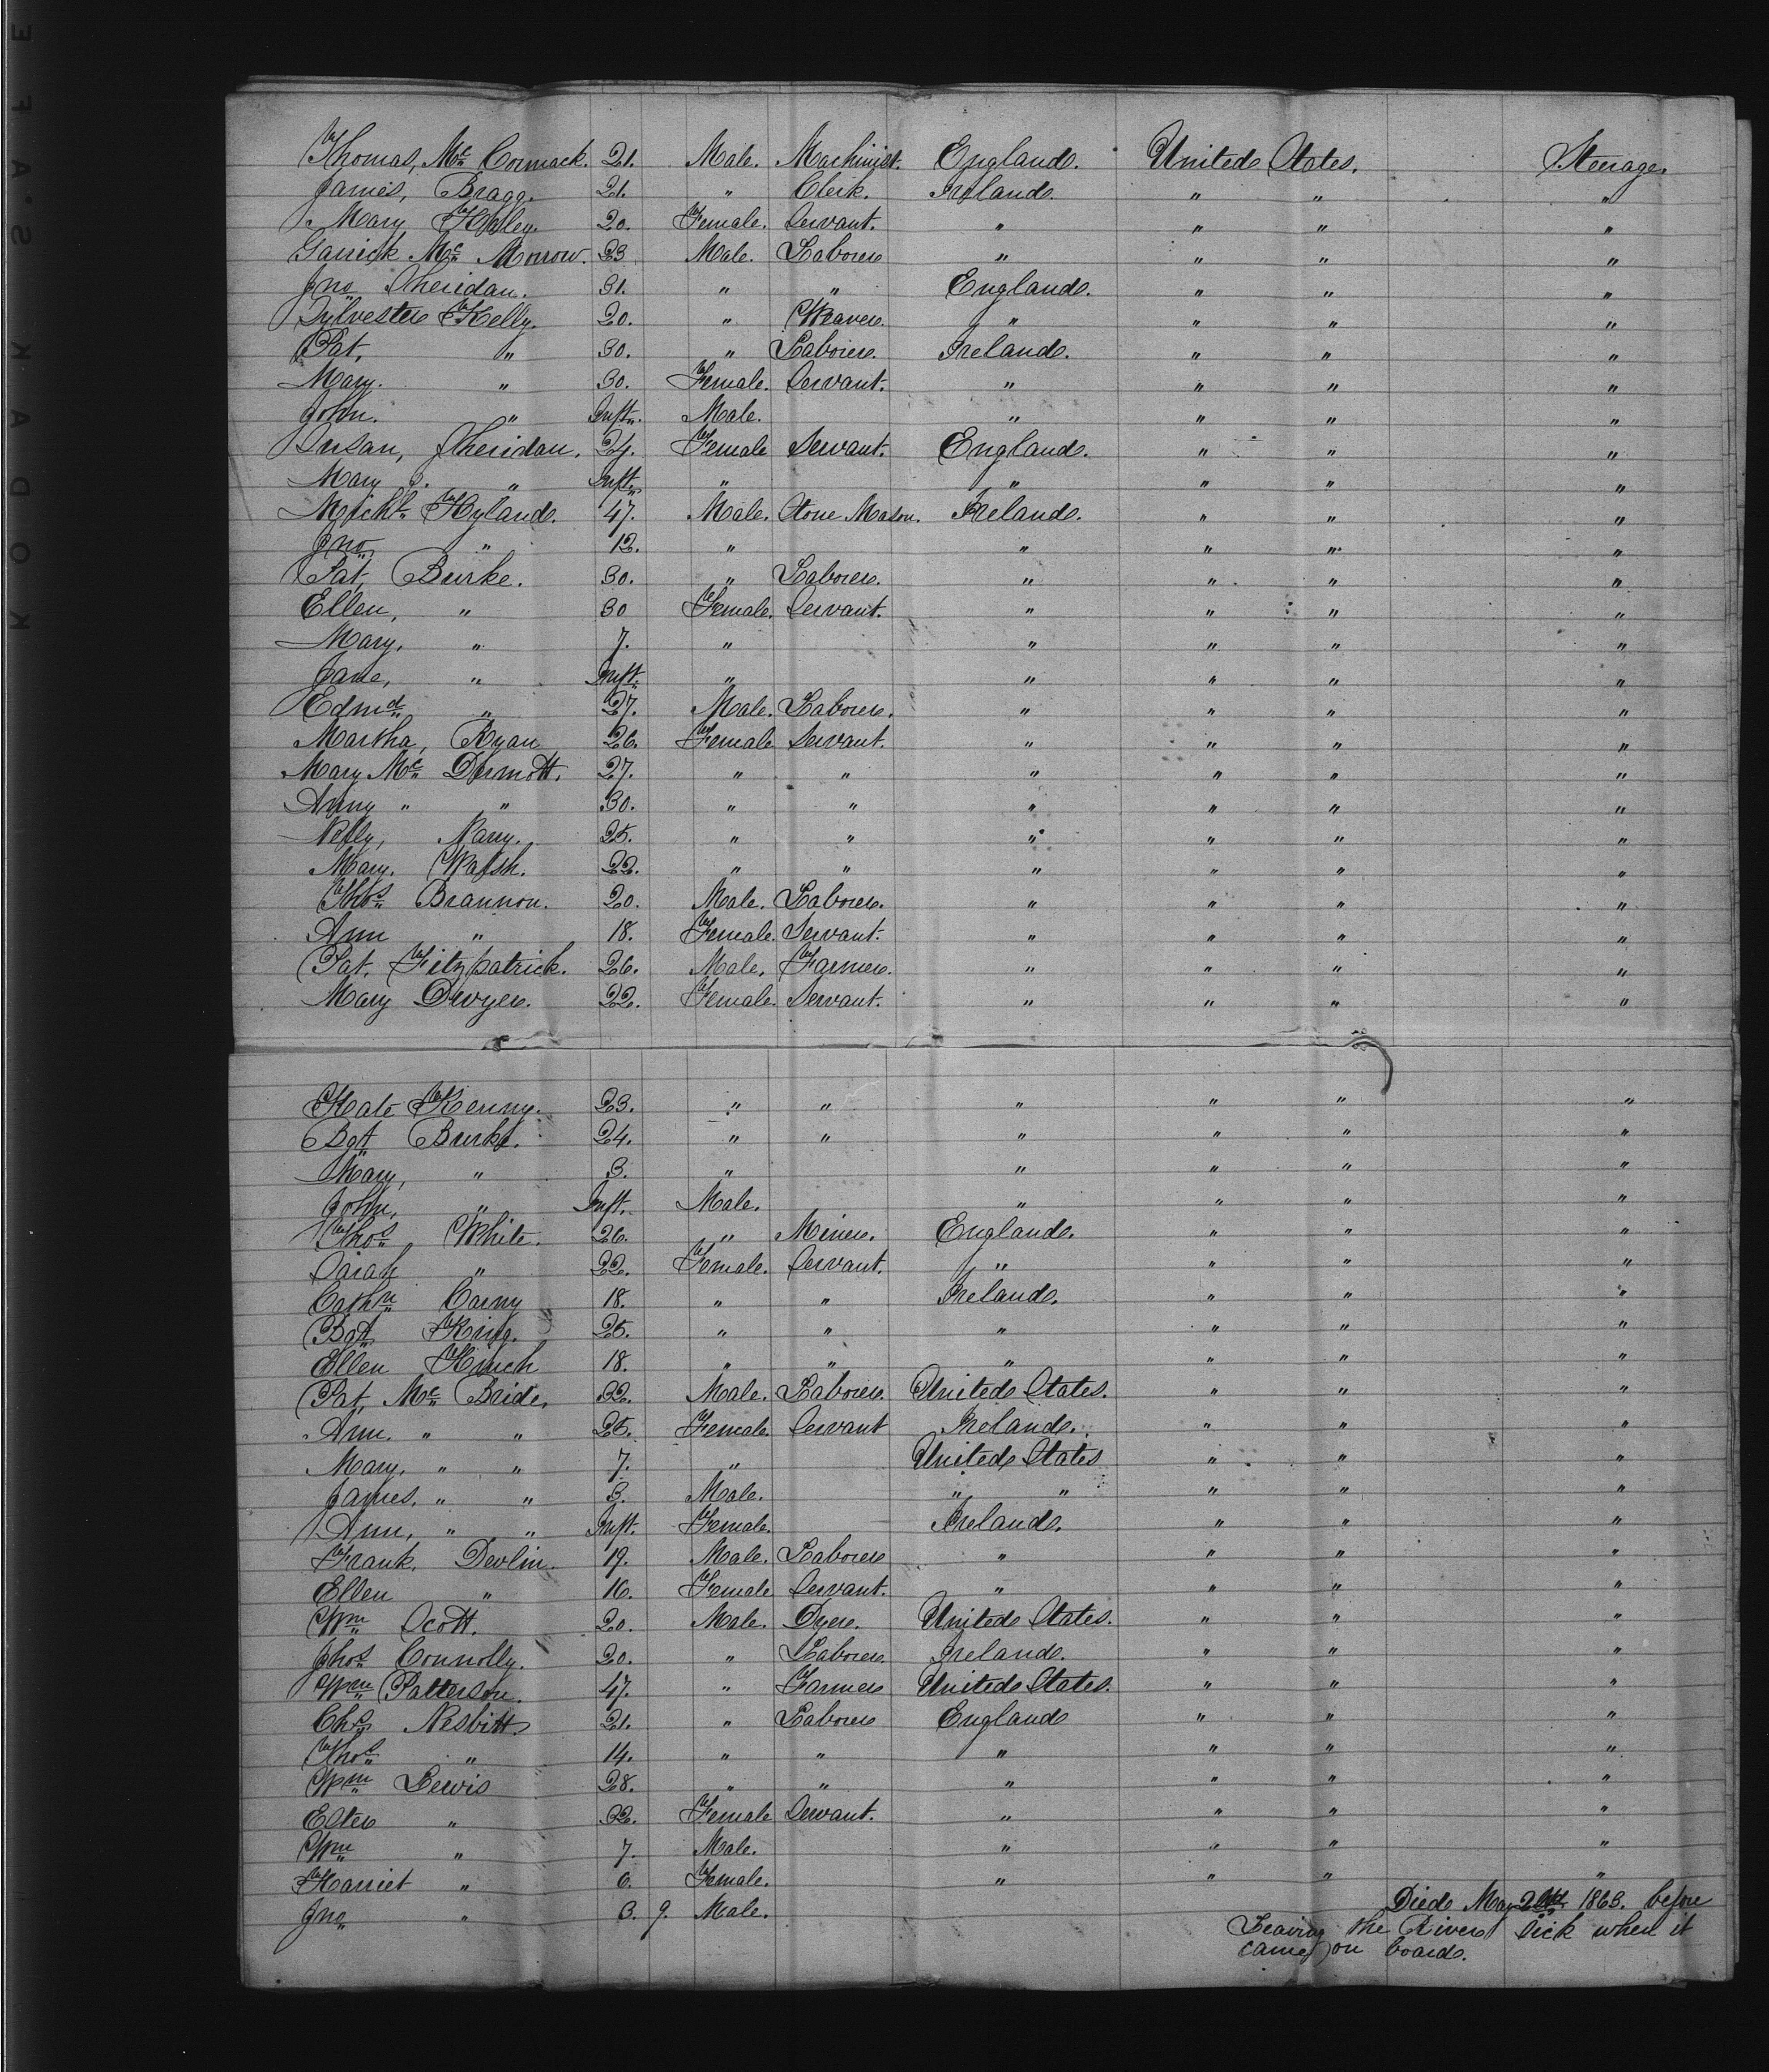 Thomas, Mc Cormack. 21. Male. Machinist. England. United States. Steerage.
James, Bragg. 21. " Clerk. Ireland. " " "
Mary Haley. 20. Female. Servant. " " " "
Garrick Mc Morrow. 23 Male. Laborer " " " "
Jno Sheridan. 31. " " England. " " "
Sylvester Kelly. 20. " Weaver. " " " "
Pat, " 30. " Laborer. Ireland. " " "
Mary. " 30. Female. Servant. " " " "
John. " Inft. Male. " " " "
Susan, Sheridan. 24. Female Servant. England. " " "
Mary " Inft. " " " " "
Michl Hyland. 47. Male. Stone Mason. Ireland. " " "
Jno " 12. " " " " "
Pat, Burke. 30. " Laborer. " " " "
Ellen, " 30 Female. Servant. " " " "
Mary, " 7. " " " " "
Jane, " Inft. " " " " "
Edmd " 27. Male. Laborer. " " " "
Martha, Ryan 26. Female Servant. " " " "
Mary Mc Dermott. 27. " " " " " "
Anny " " 30. " " " " " "
Nelly, Nary. 25. " " " " " "
Mary. Walsh. 22. " " " " " "
Thos Brannon. 20. Male. Laborer. " " " "
Ann " 18. Female. Servant. " " " "
Pat, Fitzpatrick. 26. Male. Farmer. " " " "
Mary Dwyer. 22. Female. Servant. " " " "
Kate Kenny. 23. " " " " " "
Bgt Burke. 24. " " " " " "
Mary, " 3. " " " " "
John, " Inft. Male. " " " "
Thos White. 26. " Miner. England. " " "
Sarah " 22. Female. Servant. " " " "
Cathn Carny 18. " " Ireland. " " "
Bgt King. 25. " " " " " "
Ellen 18. " " " " " "
Pat, Mc Bride, 32. Male. Laborer United States. " " "
Ann. " " 25. Female. Servant Ireland. " " "
Mary, " " 7. " United States " " "
James, " " 3. Male. " " " " "
Ann, " " Inft. Female. Ireland. " " "
Frank, Devlin. 19. Male. Laborer " " " "
Ellen " 16. Female Servant. " " " "
Wm Scott. 20. Male. Dyer. United States. " " "
Thos Connolly. 20. " Laborer. Ireland. " " "
Wm Patterson. 47. " Farmer United States. " " "
Chs Nesbitt 21. " Laborer England " " "
Thos " 14. " " " " " "
Wm Lewis 28. " " " " " "
Ester " 32. Female Servant. " " " "
Wm " 7. Male. " " " "
Harriet " 6. Female. " " " "
Jno " 3. 9. Male. Died May 1863. before
Leaving the River Sick when it
came on board.
KODAK SAFE